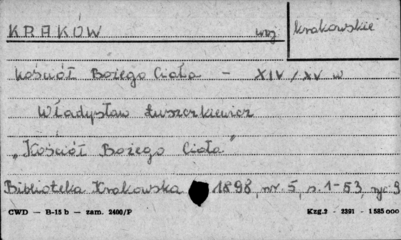 KRAKÓW woj. krakowskie
Kościół Bożego Ciała - XIV/XV w
Władysław Łuszczkiewicz
"Kościół Bożego Ciała"
Biblioteka Krakowska 1898, nr. 5, s. 1-53, ryc. 9
CWD — B-15 b — zam. 2400/P Kzg. 2 - 2391 - 1 585 000